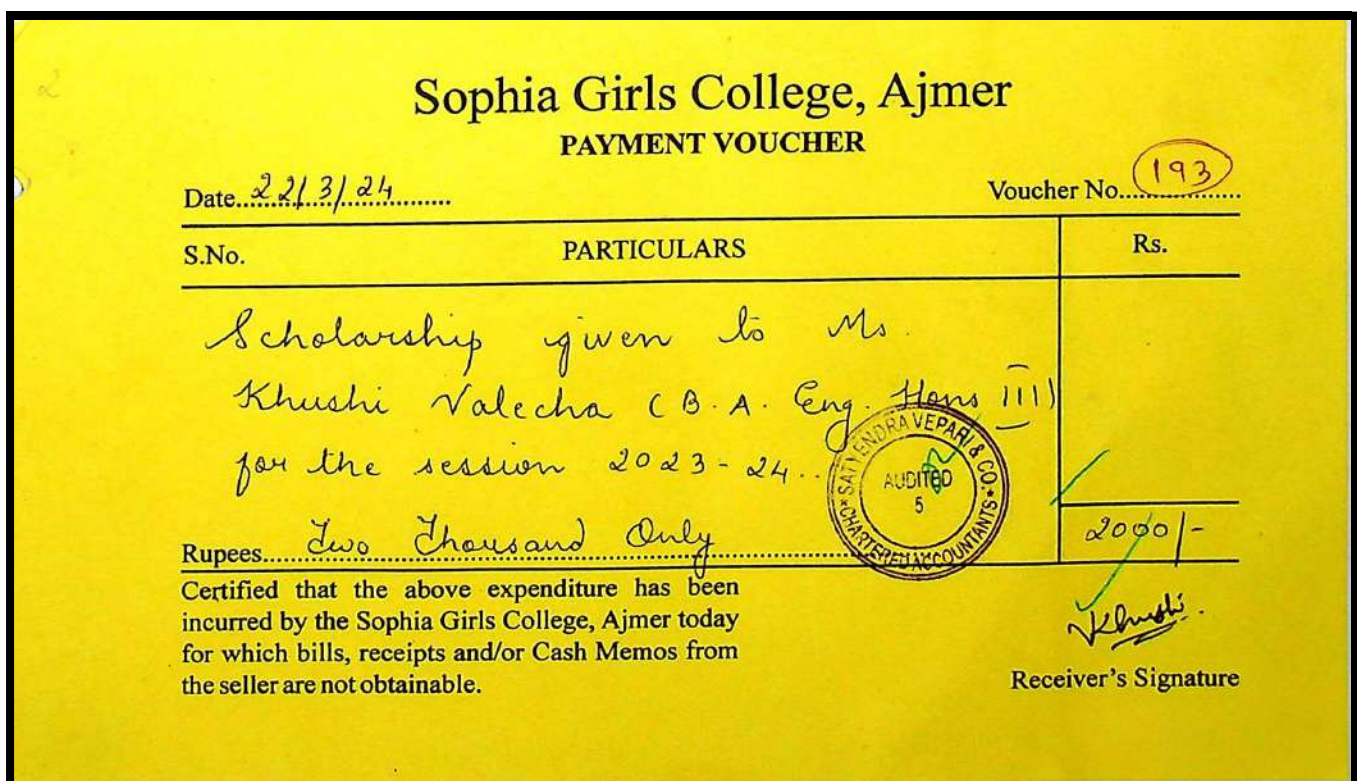 2
Sophia Girls College, Ajmer
PAYMENT VOUCHER
Date..22/3/24.......... Voucher No..193..
S.No. PARTICULARS Rs.
Scholarship given to Ms.
Khushi Valecha (B.A. Eng. Hons III)
for the session 2023-24..
SATYENDRA VEPARI & CO.
AUDITED
5
CHARTERED ACCOUNTANTS
Rupees... Two Thousand Only 2000/-
Certified that the above expenditure has been
incurred by the Sophia Girls College, Ajmer today
for which bills, receipts and/or Cash Memos from
the seller are not obtainable.
Khushi.
Receiver's Signature